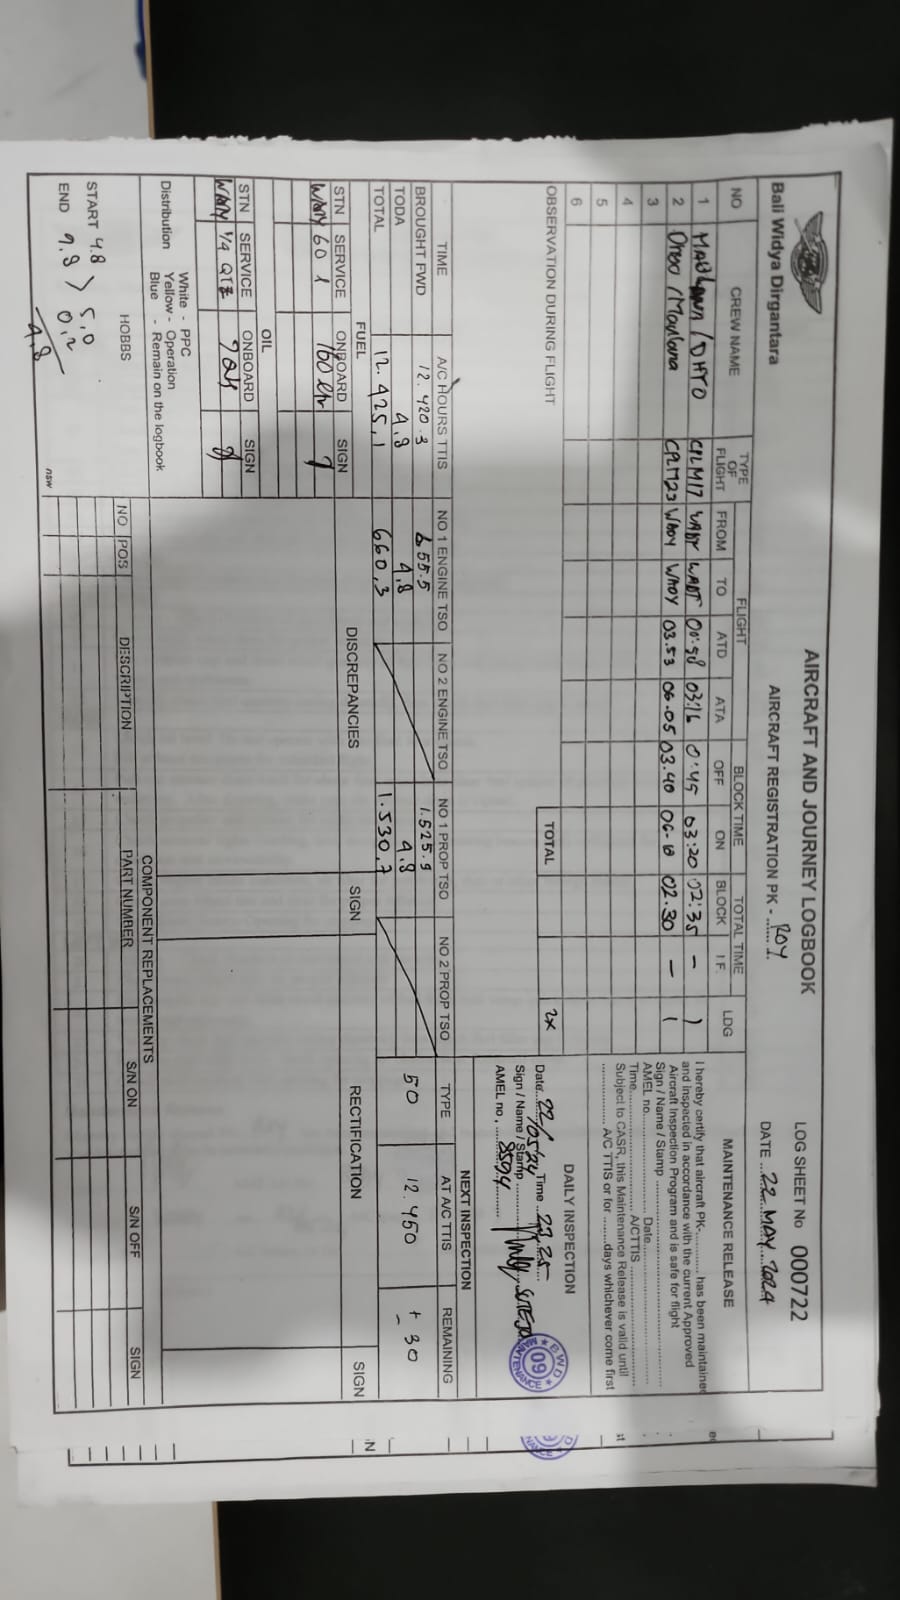 Bali Widya Dirgantara
AIRCRAFT AND JOURNEY LOGBOOK
AIRCRAFT REGISTRATION PK - ....... ROY
LOG SHEET No 000722
DATE ... 22 MAY 2024
NO CREW NAME TYPE OF FLIGHT FLIGHT BLOCK TIME TOTAL TIME LDG
FROM TO ATD ATA OFF ON BLOCK I F.
1 / DHYO CPLM17 WADY WADY 00:58 03:16 0:45 03:20 02:35 - 1
2 / Maulana CPLM23 WADY WADY 03.53 06.05 03.40 06-10 02.30 - 1
3
4
5
6
OBSERVATION DURING FLIGHT TOTAL 2x
MAINTENANCE RELEASE
I hereby certify that aircraft PK-............ has been maintained
and inspected in accordance with the current Approved
Aircraft Inspection Program and is safe for flight
Sign / Name / Stamp ....................
AMEL no. .................... Date ....................
Time .................... A/CTTIS ....................
Subject to CASR, this Maintenance Release is valid until
.................... A/C TTIS or for .........days whichever come first
DAILY INSPECTION
Date.. 22/05/24 Time .. 23.25
Sign / Name / Stamp .......... SUTEJO
AMEL no, ........ 8594
BWD 09 MAINTENANCE
TIME A/C HOURS TTIS NO 1 ENGINE TSO NO 2 ENGINE TSO NO 1 PROP TSO NO 2 PROP TSO
BROUGHT FWD 12.420.3 655.5 1.525.9
TODA 4.8 4.8 4.8
TOTAL 12.425,1 660,3 1.530,7
NEXT INSPECTION
TYPE AT A/C TTIS REMAINING
50 12.450 + 30
-
FUEL
STN SERVICE ONBOARD SIGN
WADY 60 l 160 ltr
OIL
STN SERVICE ONBOARD SIGN
WADY 1/4 QTZ 7 qts
DISCREPANCIES SIGN RECTIFICATION SIGN
Distribution White - PPC
Yellow - Operation
Blue - Remain on the logbook
HOBBS
START 4.8 > 5,0
END 9.8 0,2
4.8
nsw
COMPONENT REPLACEMENTS
NO POS DESCRIPTION PART NUMBER S/N ON S/N OFF SIGN